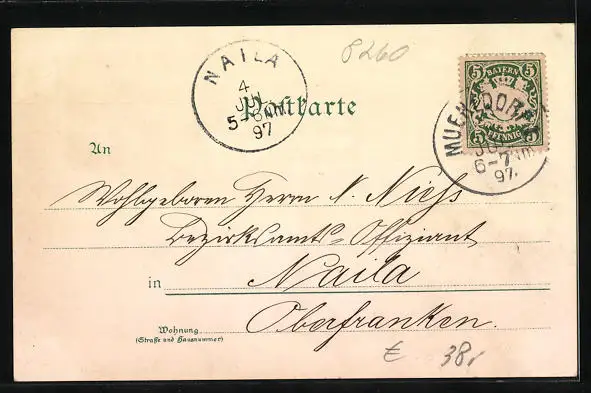 8260
NAILA
4
JUL
5-6NM.
97
Postkarte
5 BAYERN 5
PFENNIG
MUENZDORF
JUL
6-7NM.
97.
An
Wohlgeboren Herrn N. Niess
Bezirksamts-Offiziant
in Naila
Wohnung
(Straße und Hausnummer)
Oberfranken.
€ 38,